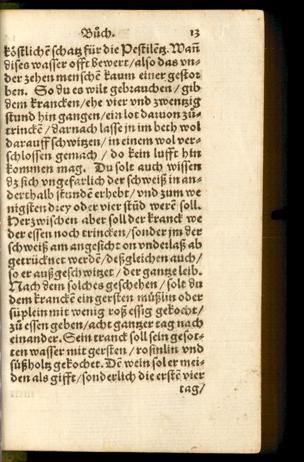 Bůch. 13
köstlichē schatz für die Pestilētz. Wañ
dises wasser offt bewert / also das vn-
der zehen menschē kaum einer gestor
ben. So du es wilt gebrauchen / gib
dem krancken / ehe vier vnd zwentzig
stund hin gangen / ein lot daruon zů-
trinckē / darnach lasse jn im beth wol
darauff schwitzen / in einem wol ver-
schlossen gemach / do kein lufft hin
kommen mag. Du solt auch wissen
dz sich vngefarlich der schweiß in an-
derthalb stundē erhebt / vnd zum we
nigsten drey oder vier stūd werē soll.
Herzwischen aber soll der kranck we
der essen noch trincken / sonder jm der
schweiß am angesicht on vnderlaß ab
getrücknet werdē / deßgleichen auch /
so er außgeschwitzet / der gantze leib.
Nach dem solches geschehen / solt du
dem kranckē ein gersten můßlin oder
süplein mit wenig roß essig gekocht /
zů essen geben / acht gantzer tag nach
einander. Sein tranck soll sein gesot-
ten wasser mit gersten / rosinlin vnd
süßholtz gekochet. Dē wein sol er mei-
den als gifft / sonderlich die erstē vier
tag /